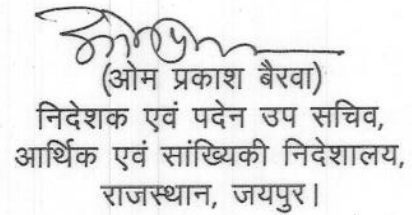 (ओम प्रकाश बैरवा)
निदेशक एवं पदेन उप सचिव,
आर्थिक एवं सांख्यिकी निदेशालय,
राजस्थान, जयपुर।